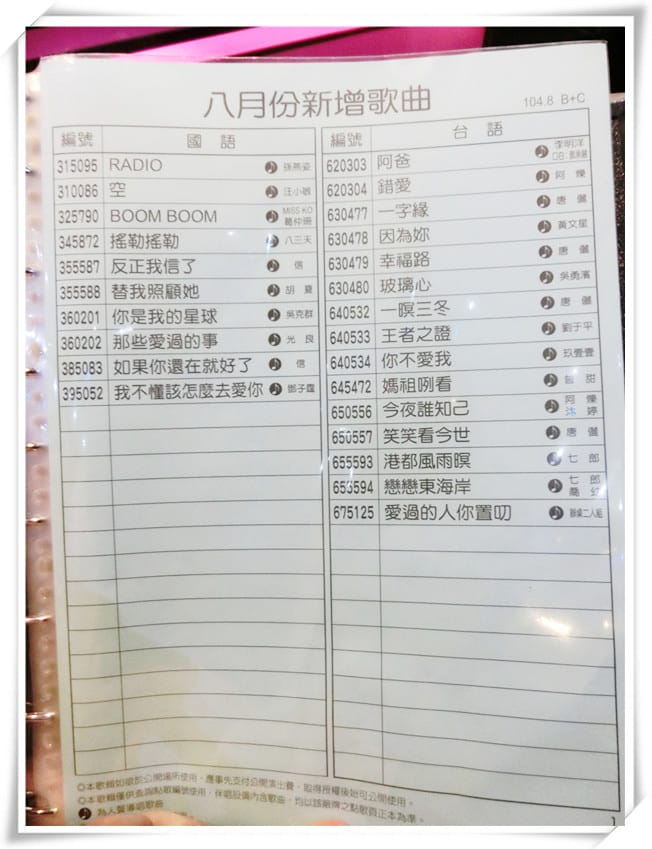 八月份新增歌曲
104.8 B+C
編號 國語
315095 RADIO 孫燕姿
310086 空 汪小敏
325790 BOOM BOOM MISS KO 葛仲珊
345872 搖勒搖勒 八三夭
355587 反正我信了 信
355588 替我照顧她 胡夏
360201 你是我的星球 吳克群
360202 那些愛過的事 光良
385083 如果你還在就好了 信
395052 我不懂該怎麼去愛你 鄧子霆
編號 台語
620303 阿爸 李明洋
620304 錯愛 阿爍
630477 一字緣 唐儷
630478 因為妳 黃文星
630479 幸福路 唐儷
630480 玻璃心 吳勇濱
640532 一暝三冬 唐儷
640533 王者之證 劉于平
640534 你不愛我 玖壹壹
645472 媽祖咧看 甜
650556 今夜誰知己 阿爍 沐婷
650557 笑笑看今世 唐儷
655593 港都風雨暝 七郎
653594 戀戀東海岸 七郎 喬幻
675125 愛過的人你置叨 辦桌二人組
◎本歌輯如欲於公開場所使用，應事先支付公開演出費，取得授權後始可公開使用。
◎本歌輯僅供查詢點歌編號使用，伴唱設備內含歌曲，均以該廠牌之點歌頁正本為準。
為人聲導唱歌曲
1